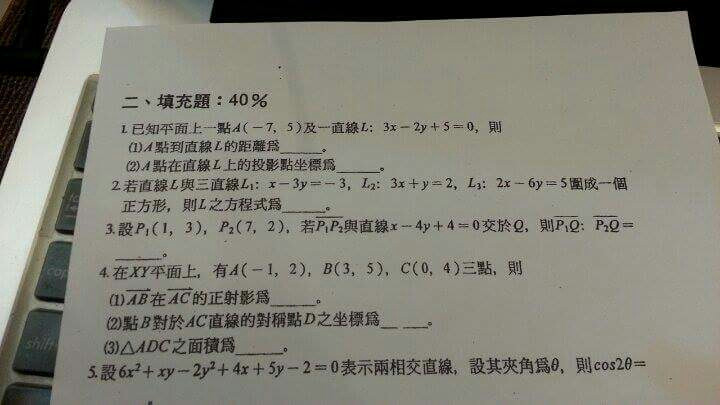 二、填充題：40%
1. 已知平面上一點A(－7，5)及一直線L：3x－2y＋5＝0，則
(1)A點到直線L的距離為______。
(2)A點在直線L上的投影點坐標為______。
2. 若直線L與三直線L₁：x－3y＝－3，L₂：3x＋y＝2，L₃：2x－6y＝5圍成一個
正方形，則L之方程式為______。
3. 設P₁(1，3)，P₂(7，2)，若P₁P₂與直線x－4y＋4＝0交於Q，則P₁Q：P₂Q＝
______。
4. 在XY平面上，有A(－1，2)，B(3，5)，C(0，4)三點，則
(1)AB在AC的正射影為______。
(2)點B對於AC直線的對稱點D之坐標為__ __。
(3)△ADC之面積為______。
5. 設6x²＋xy－2y²＋4x＋5y－2＝0表示兩相交直線，設其夾角為θ，則cos2θ＝
shift